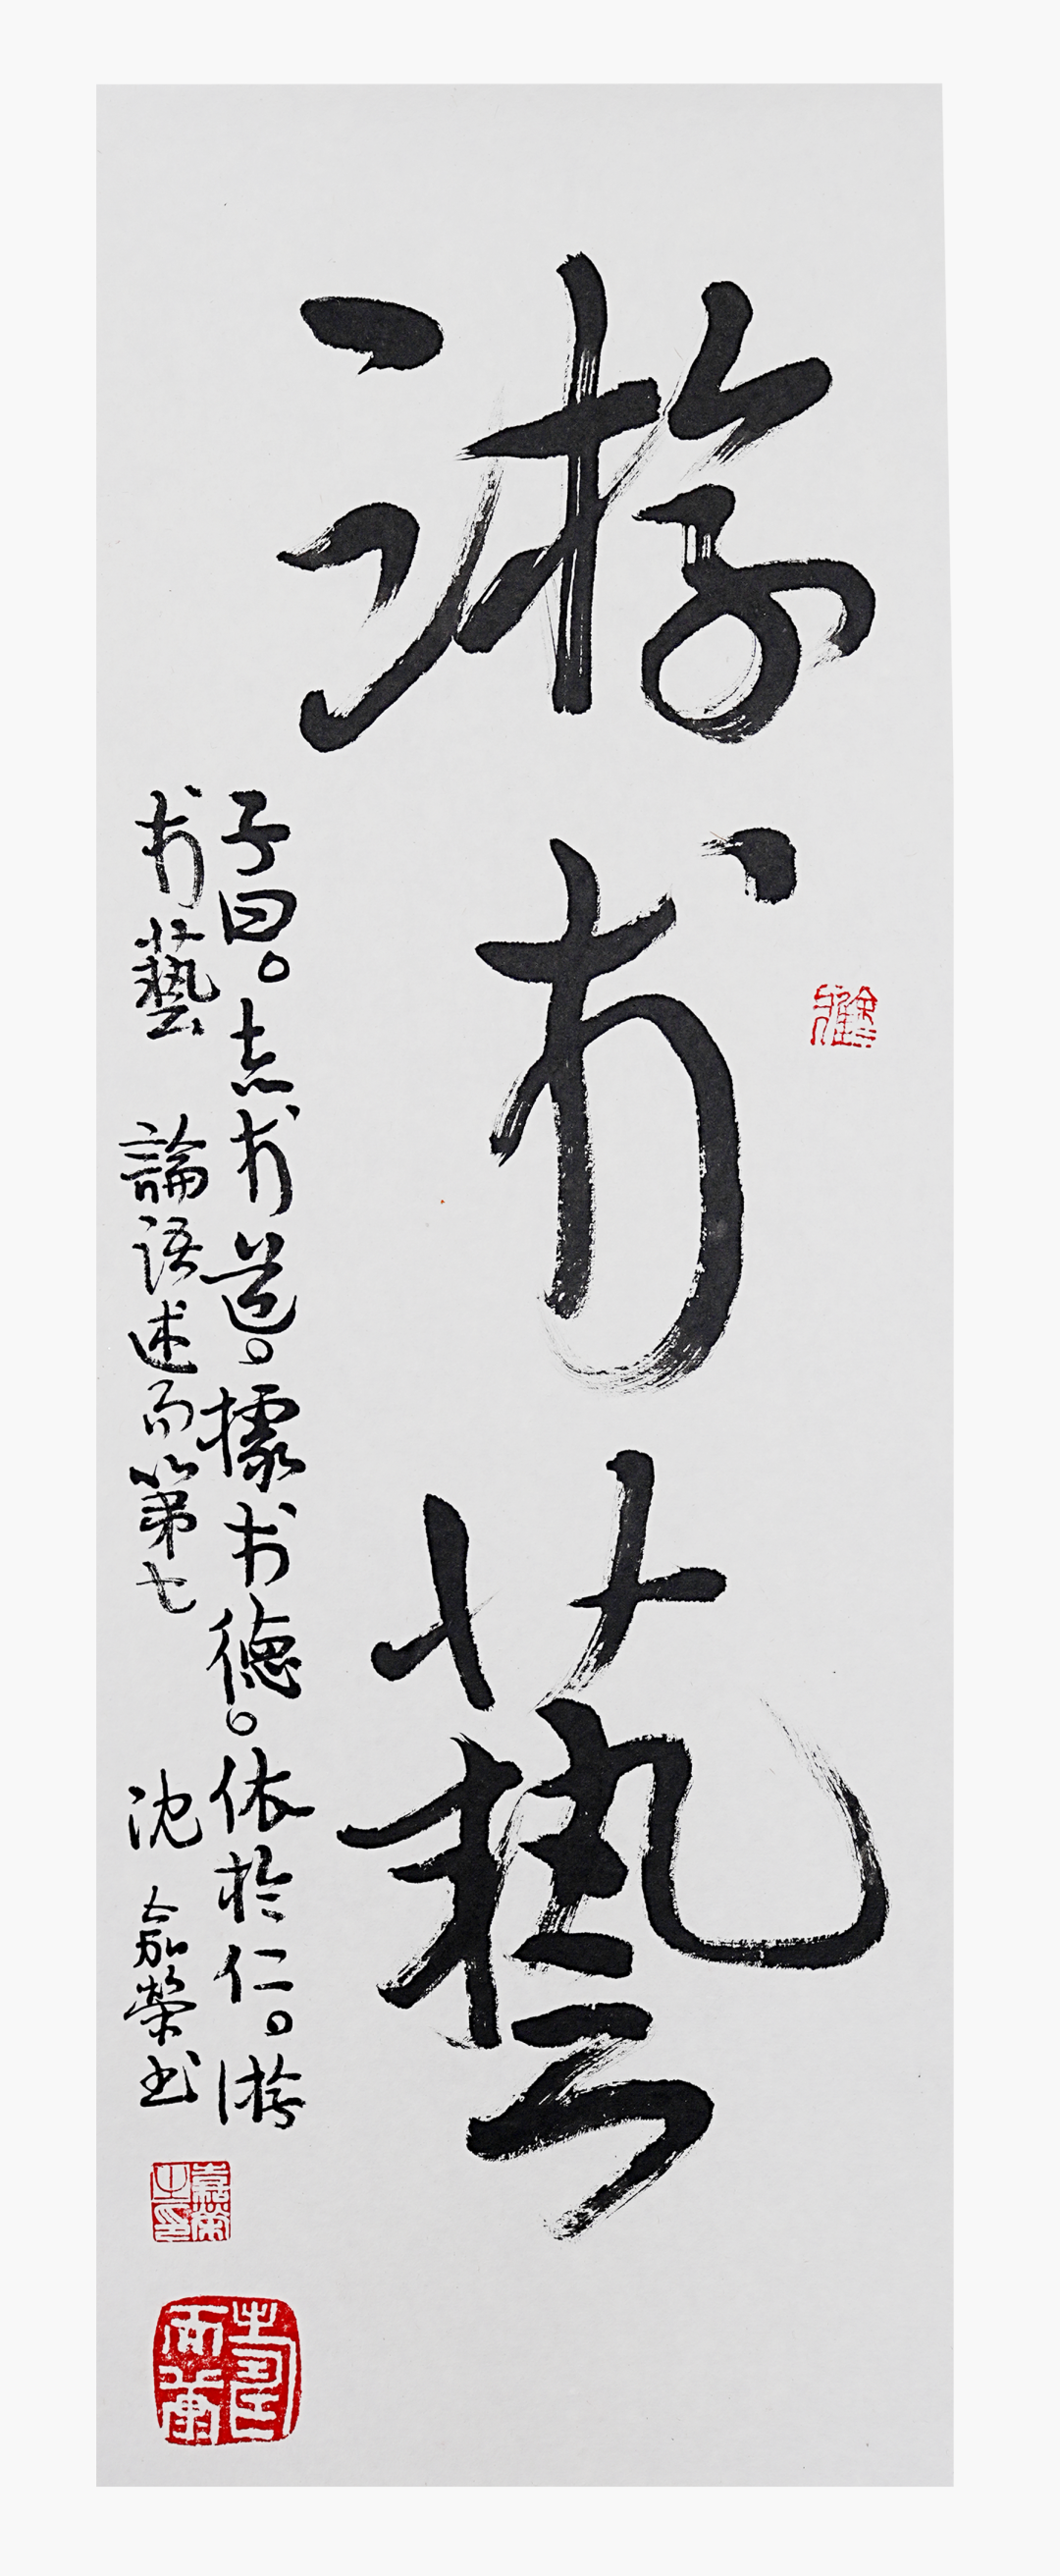 游於藝
子曰。志於道。據於德。依於仁。游
於藝 論語述而第七 沈嘉榮書
嘉榮之印